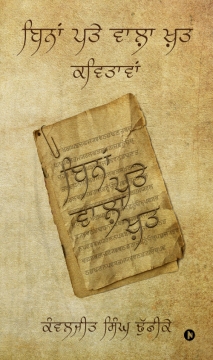 ਬਿਨਾਂ ਪਤੇ ਵਾਲਾ ਖ਼ਤ
ਕਵਿਤਾਵਾਂ
ਬਿਨਾਂ
ਪਤੇ
ਵਾਲਾ
ਖ਼ਤ
ਕੰਵਲਜੀਤ ਸਿੰਘ ਢੁੱਡੀਕੇ